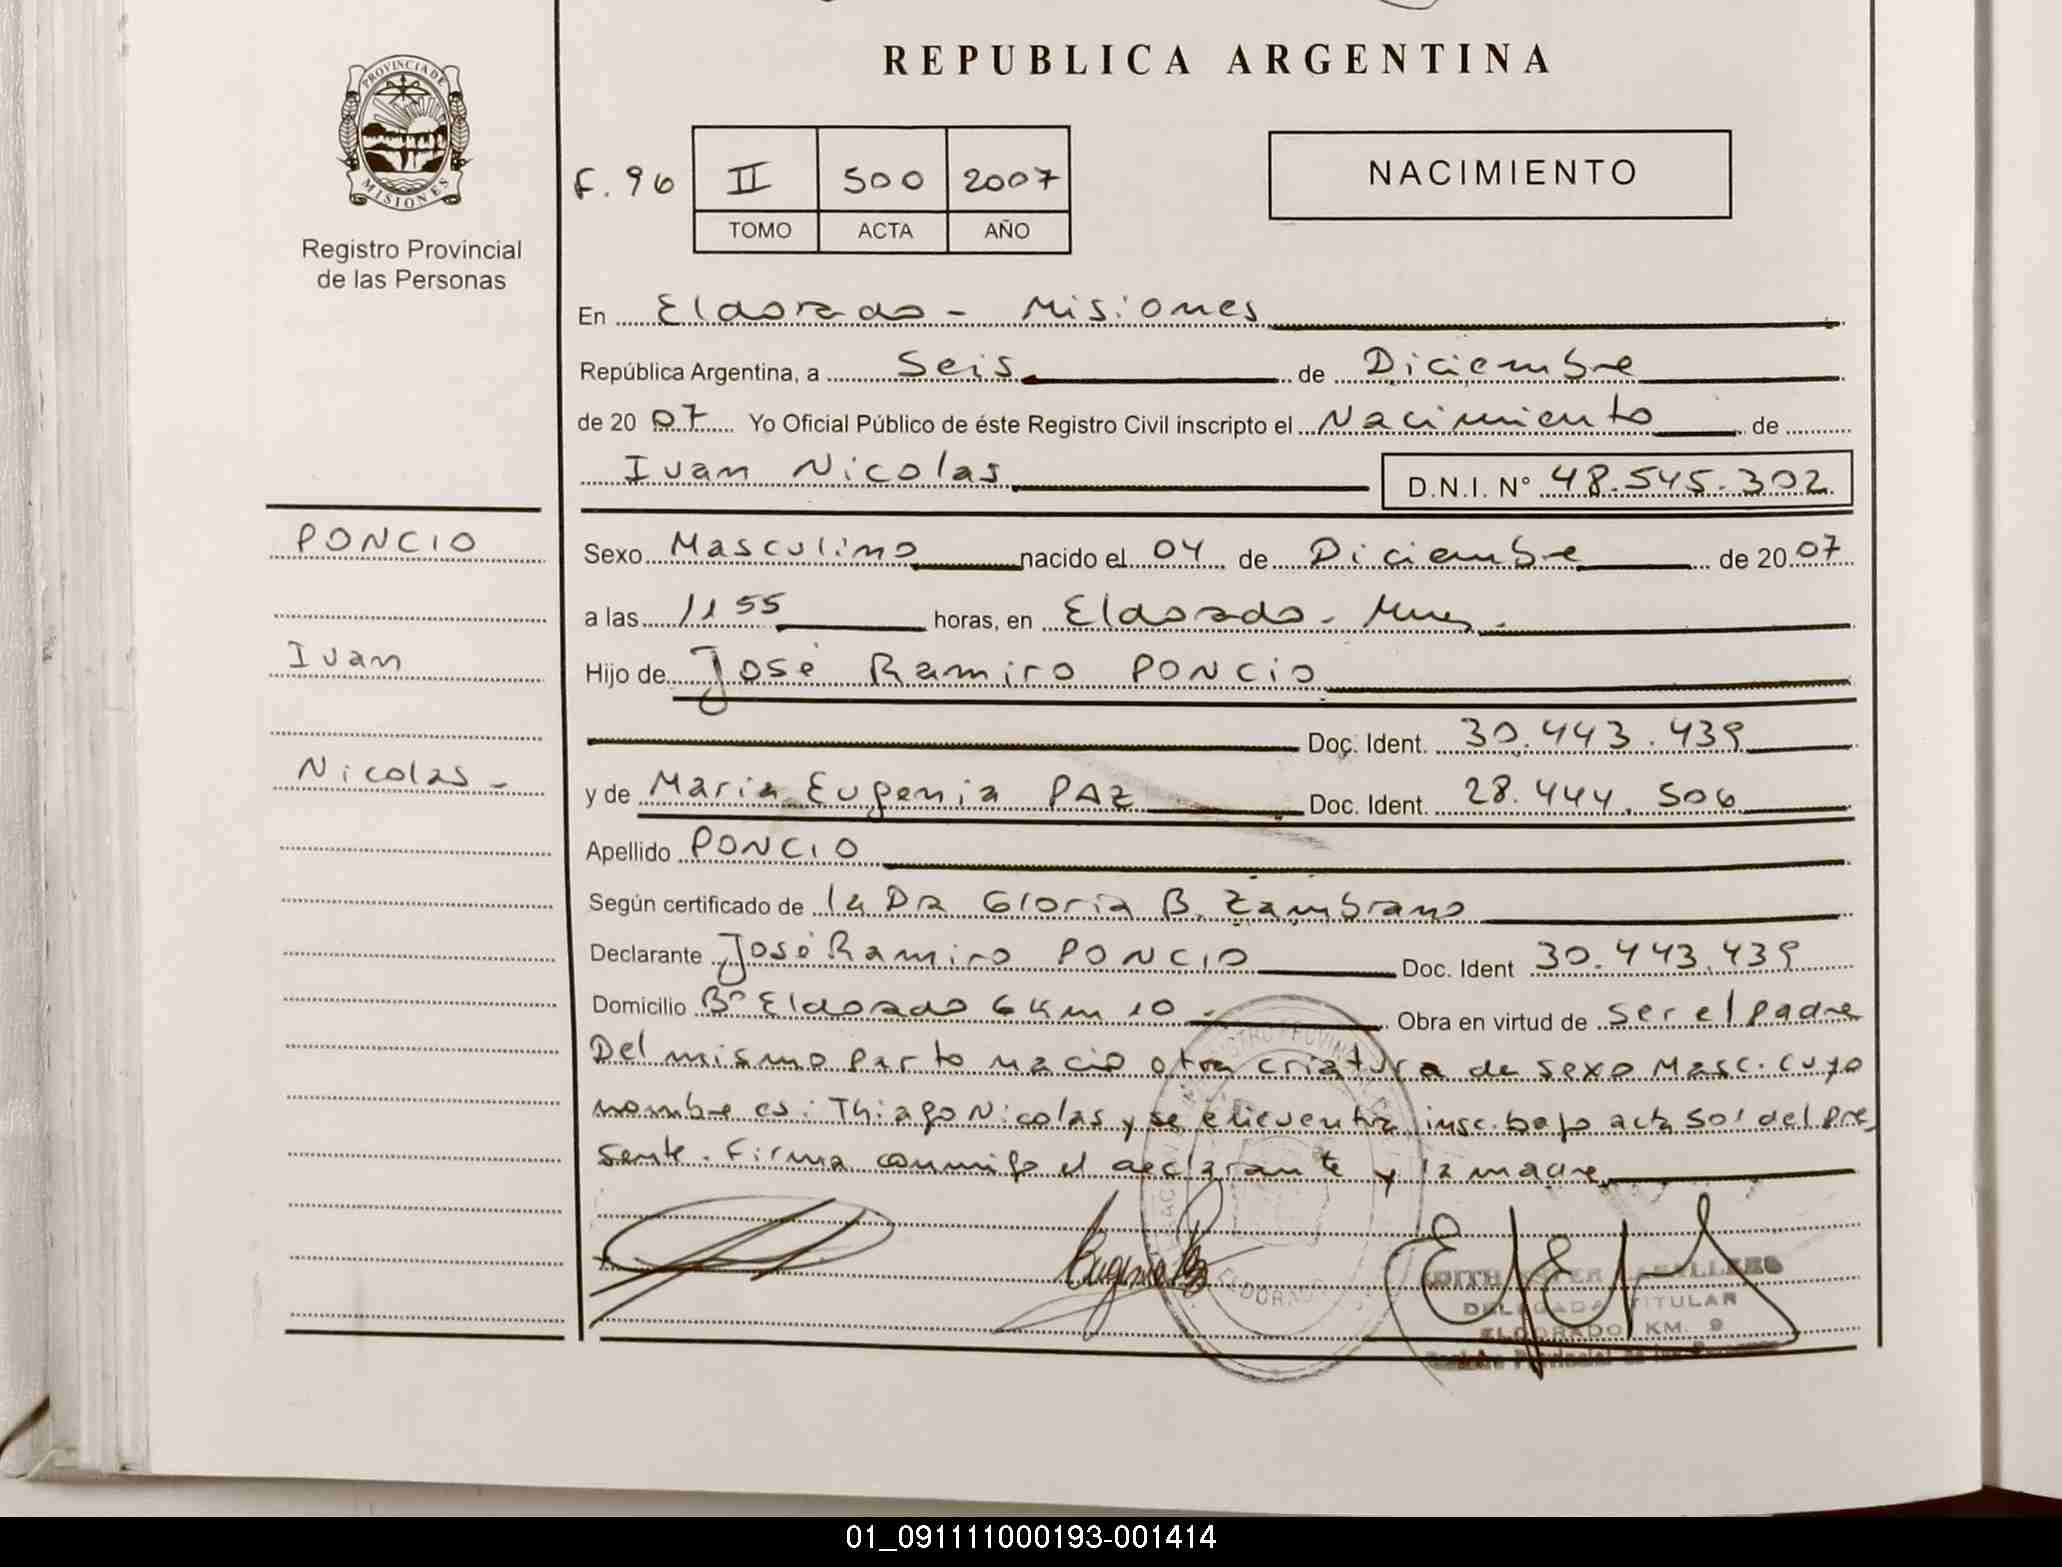 REPUBLICA ARGENTINA
PROVINCIA DE
MISIONES
Registro Provincial
de las Personas
F. 96
II 500 2007
TOMO ACTA AÑO
NACIMIENTO
En Eldorado - Misiones
República Argentina, a Seis de Diciembre
de 20 07 Yo Oficial Público de éste Registro Civil inscripto el Nacimiento de
Ivan Nicolas D.N.I. N° 48.545.302
PONCIO
Ivan
Nicolas -
Sexo Masculino nacido el 04 de Diciembre de 20 07
a las 11 55 horas, en Eldorado - Mnes.
Hijo de José Ramiro PONCIO
Doc. Ident. 30.443.439
y de Maria Eugenia PAZ Doc. Ident. 28.444.506
Apellido PONCIO
Según certificado de la Dra Gloria B. Zambrano
Declarante José Ramiro PONCIO Doc. Ident 30.443.439
Domicilio B° Eldorado 6 Km 10 - Obra en virtud de ser el padre
Del mismo parto nacio otra criatura de sexo Masc. cuyo
nombre es: Thiago Nicolas y se encuentra insc. bajo acta 501 del pre
sente. Firma conmigo el declarante y la madre
Eugenia Paz
EDITH ESTER CABALLERO
DELEGADA TITULAR
ELDORADO KM. 9
Registro Provincial de las Personas
01_091111000193-001414